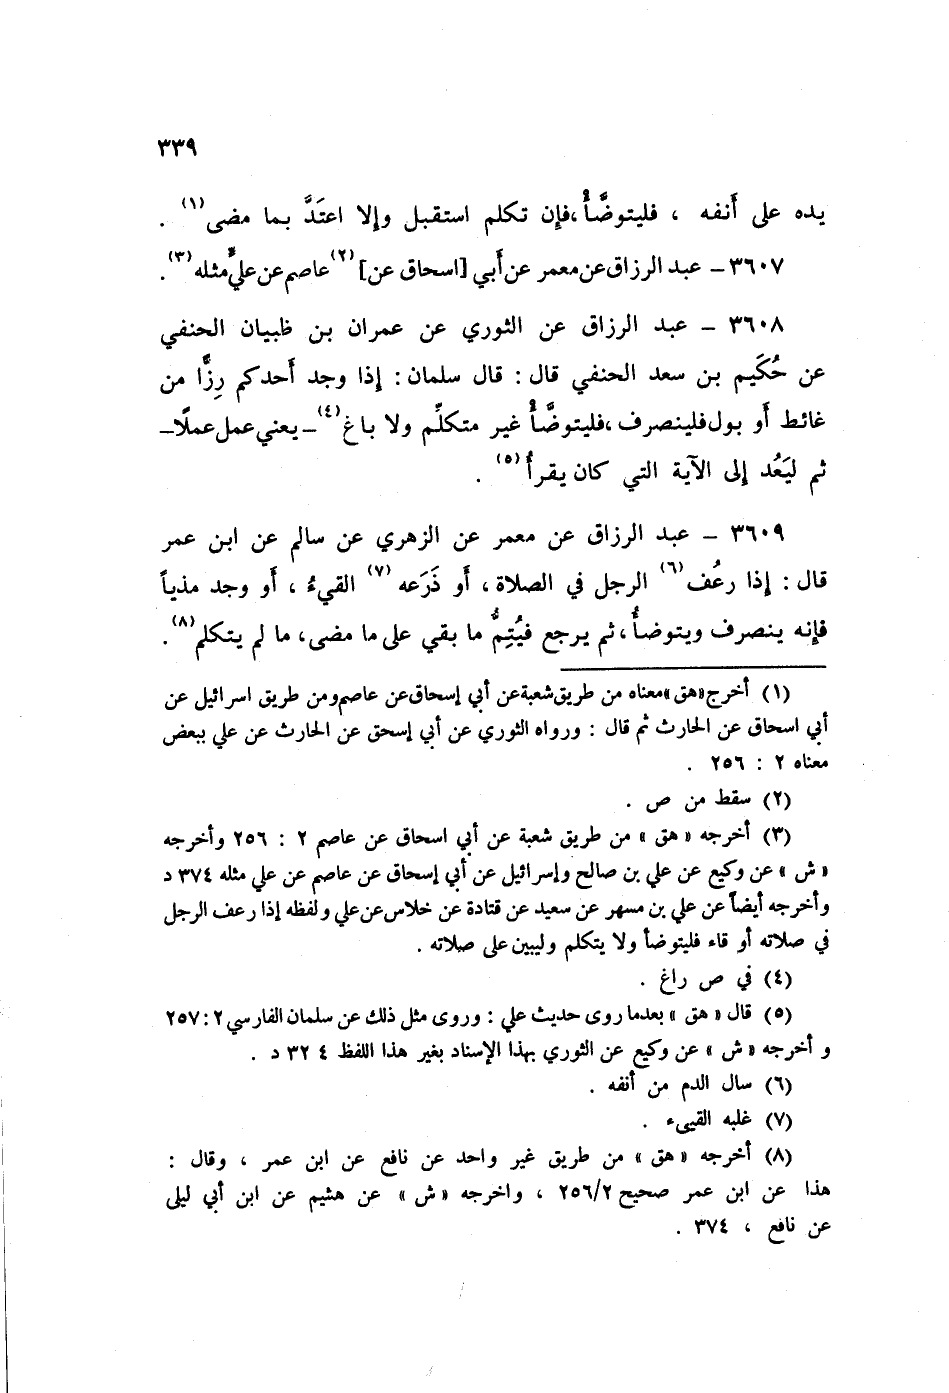 ٣٣٩
يده على أَنفه ، فليتوضَّأْ،فإِن تكلم استقبل وإلا اعتَدَّ بما مضى(١) .
٣٦٠٧ – عبد الرزاق عن معمر عن أَبي [اسحاق عن] (٢)عاصم عن عليٍّ مثله(٣).
٣٦٠٨ – عبد الرزاق عن الثوري عن عمران بن ظبيان الحنفي
عن حُكَيم بن سعد الحنفي قال : قال سلمان : إِذا وجد أَحدكم رِزًّا من
غائط أَو بول فلينصرف ،فليتوضَّأْ غير متكلِّم ولا باغ(٤) – يعني عمل عملًا–
ثم ليَعُد إِلى الآية التي كان يقرأُ(٥) .
٣٦٠٩ – عبد الرزاق عن معمر عن الزهري عن سالم عن ابن عمر
قال : إِذا رعُف(٦) الرجل في الصلاة ، أَو ذَرَعه(٧) القيءُ ، أَو وجد مذياً
فإِنه ينصرف ويتوضأُ ،ثم يرجع فيُتِمُّ ما بقي على ما مضى، ما لم يتكلم(٨).
(١) أخرج «هق»معناه من طريق شعبة عن أبي إسحاق عن عاصم ومن طريق اسرائيل عن
أبي اسحاق عن الحارث ثم قال : ورواه الثوري عن أبي إسحق عن الحارث عن علي ببعض
معناه ٢ : ٢٥٦ .
(٢) سقط من ص .
(٣) أخرجه « هق » من طريق شعبة عن أبي اسحاق عن عاصم ٢ : ٢٥٦ وأخرجه
« ش » عن وكيع عن علي بن صالح وإسرائيل عن أبي إسحاق عن عاصم عن علي مثله ٣٧٤ د
وأخرجه أيضاً عن علي بن مسهر عن سعيد عن قتادة عن خلاس عن علي ولفظه إذا رعف الرجل
في صلاته أو قاء فليتوضأ ولا يتكلم وليبن على صلاته .
(٤) في ص راغ .
(٥) قال « هق » بعدما روى حديث علي : وروى مثل ذلك عن سلمان الفارسي ٢ : ٢٥٧
و أخرجه « ش » عن وكيع عن الثوري بهذا الإسناد بغير هذا اللفظ ٣٢٤ د .
(٦) سال الدم من أنفه .
(٧) غلبه القيىء .
(٨) أخرجه « هق » من طريق غير واحد عن نافع عن ابن عمر ، وقال :
هذا عن ابن عمر صحيح ٢٥٦/٢ ، واخرجه « ش » عن هشيم عن ابن أبي ليلى
عن نافع ، ٣٧٤ .